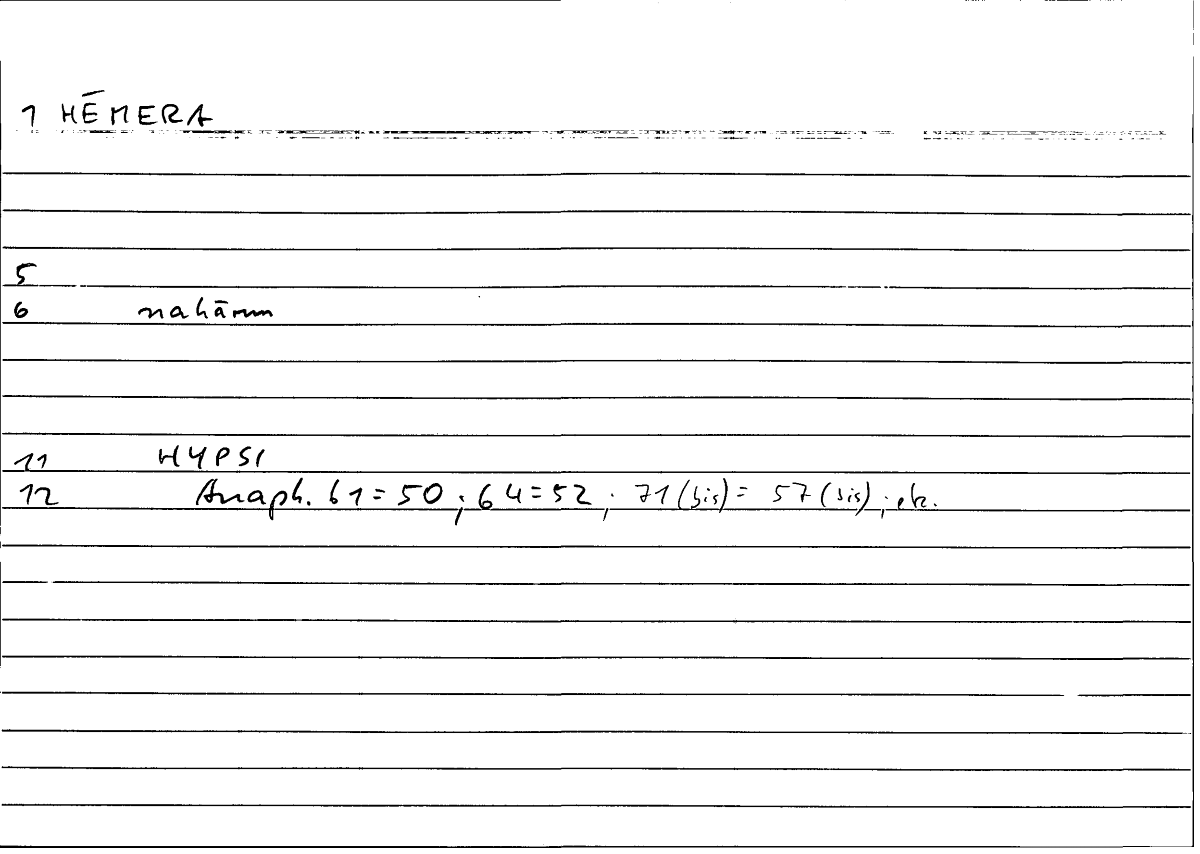 1 HĒMERA
5
6 nahārun
11 HYPSI
12 Anaph. 61 = 50 ; 64 = 52 ; 71 (bis) = 57 (bis) ; etc.